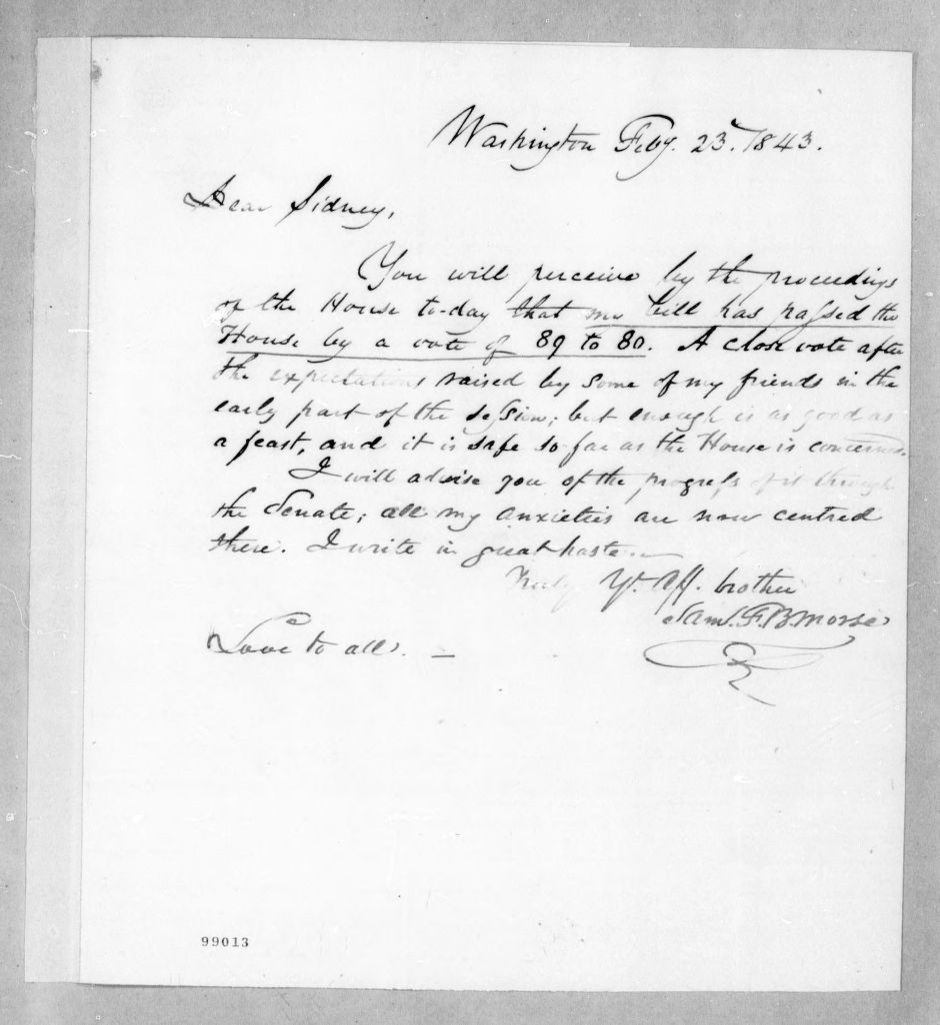 Washington Feby. 23. 1843.
Dear Sidney,
You will perceive by the proceedings
of the House to-day that my bill has passed the
House by a vote of 89 to 80. A close vote after
the expectations raised by some of my friends in the
early part of the session; but enough is as good as
a feast, and it is safe so far as the House is concerned.
I will advise you of the progress of it through
the Senate; all my anxieties are now centred
there. I write in great haste.
Truly Yr. Aff. brother
Saml. F. B. Morse
Love to all. —
99013